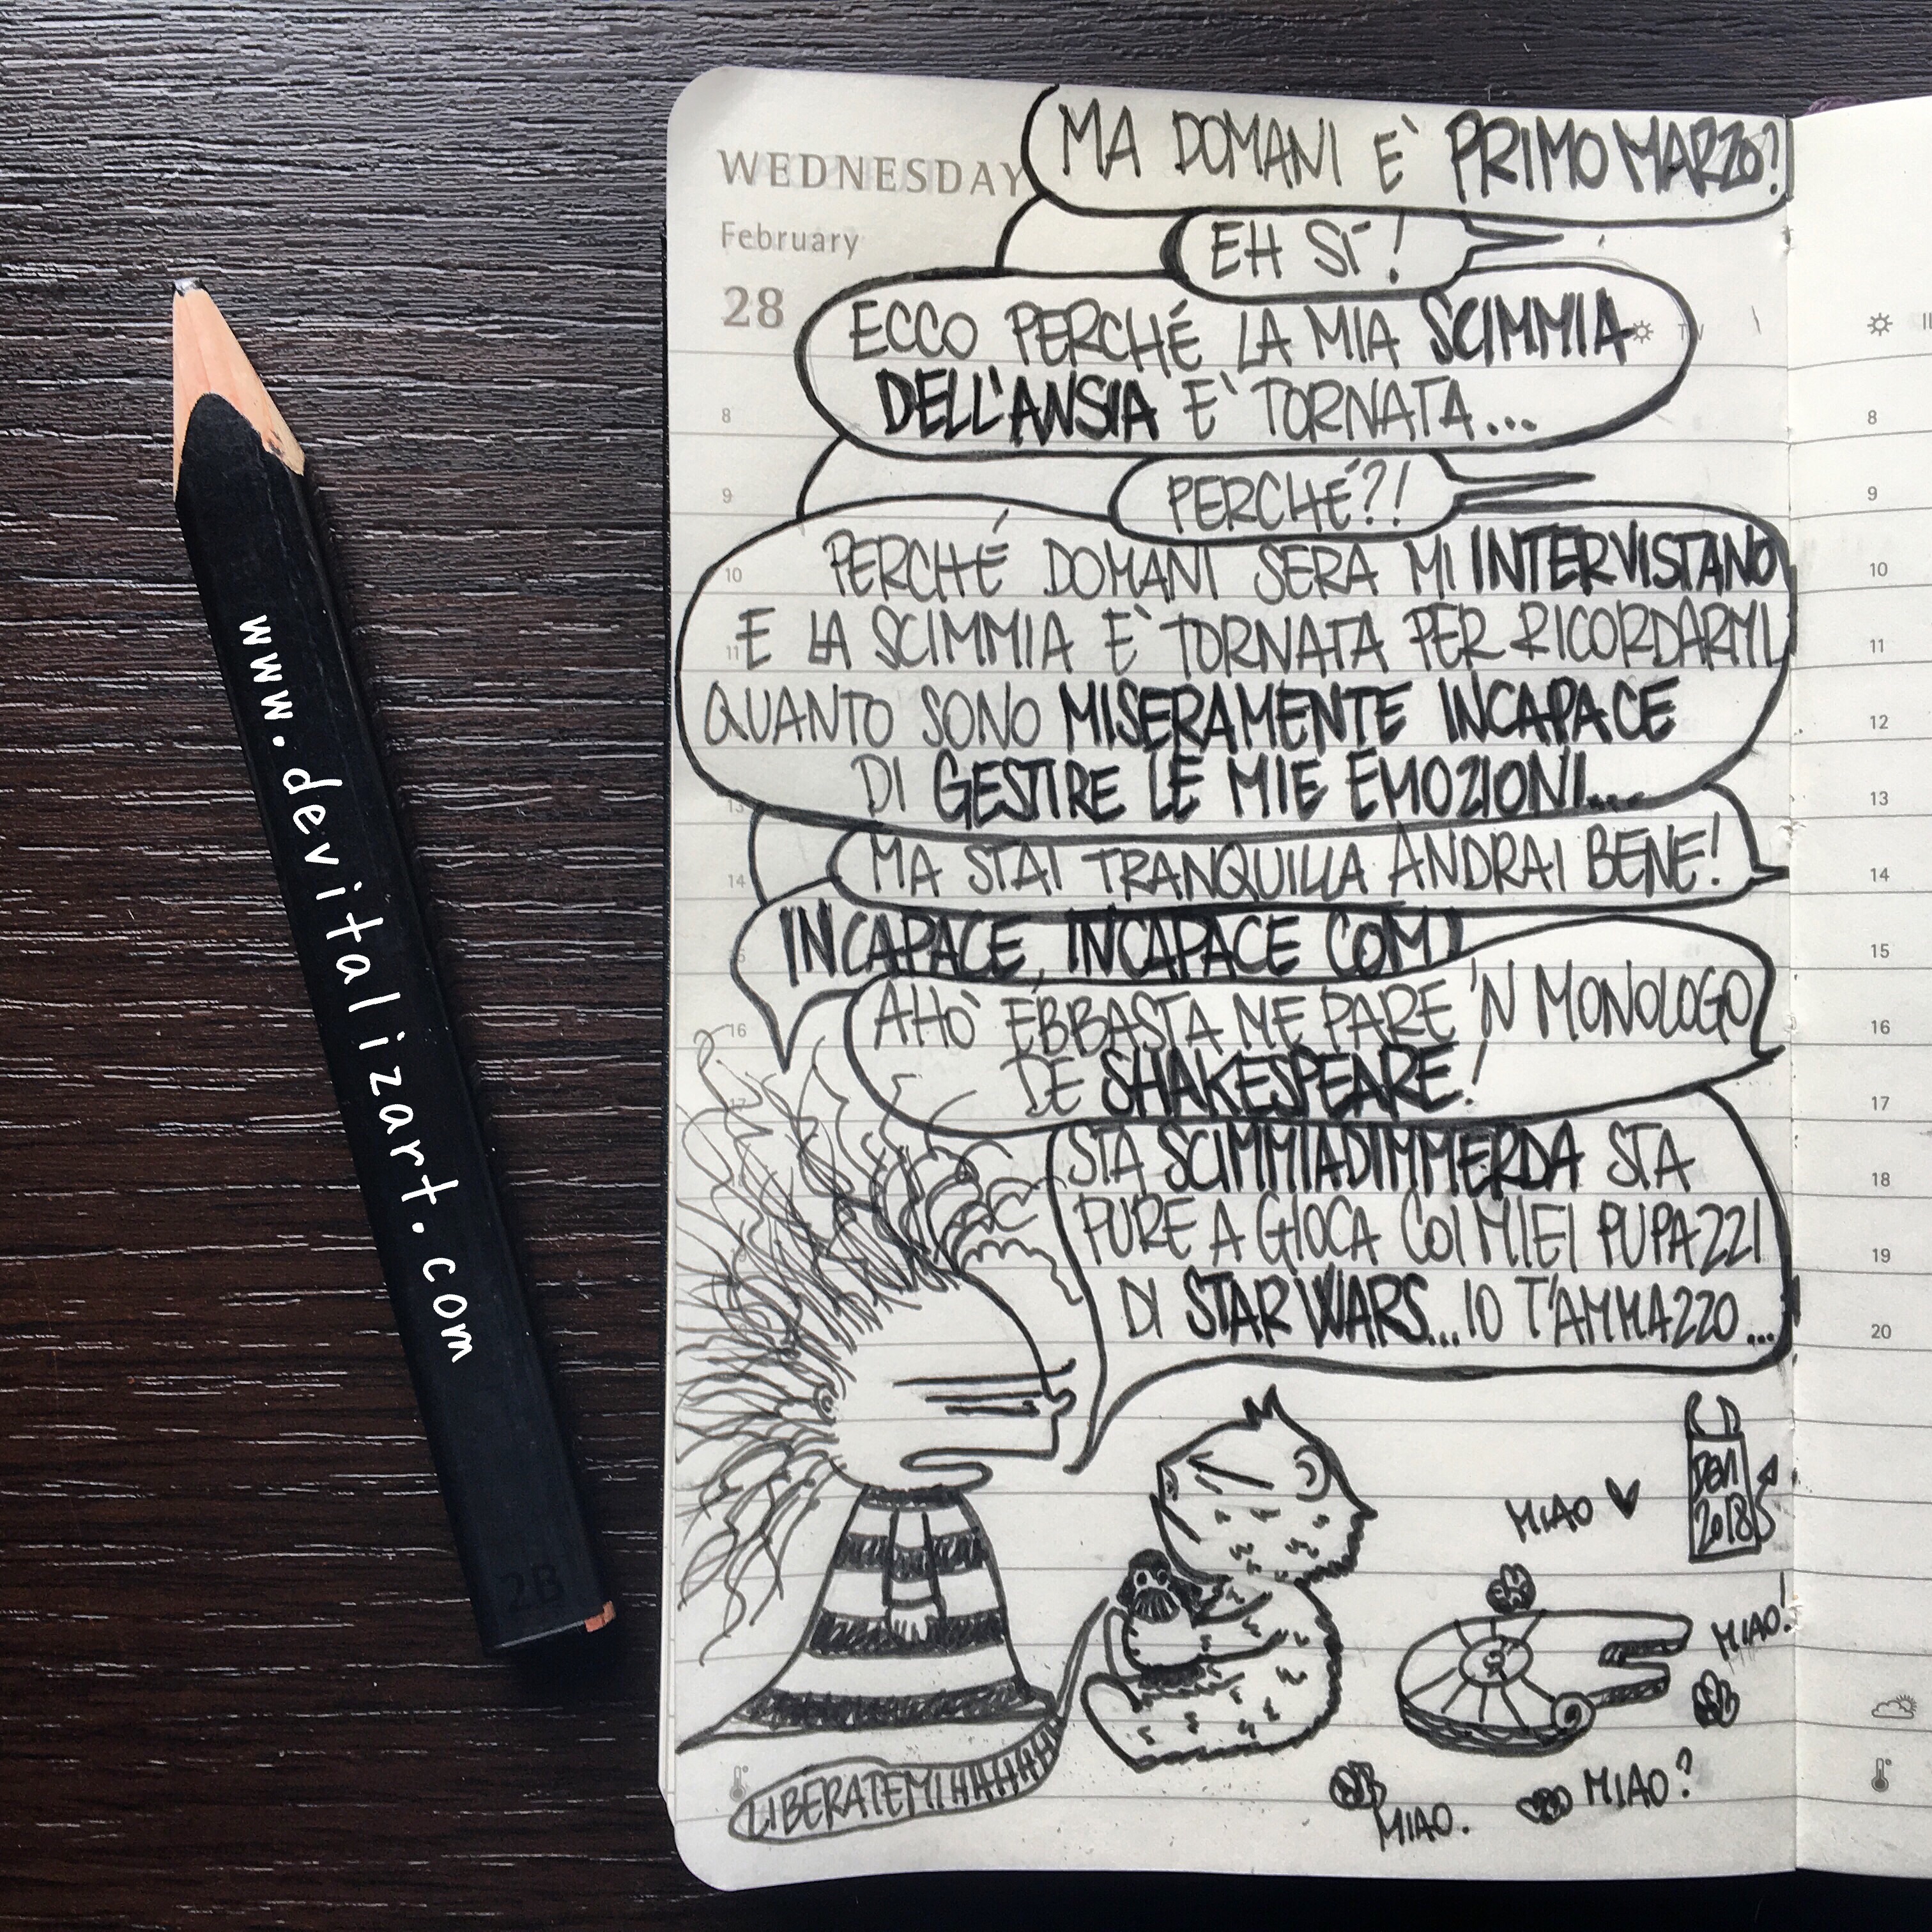 www.devitalizart.com
2B
WEDNESDAY
February
28
MA DOMANI E' PRIMO MARZO?
EH SÍ!
ECCO PERCHÉ LA MIA SCIMMIA
DELL'ANSIA E' TORNATA...
PERCHÉ?!
PERCHÉ DOMANI SERA MI INTERVISTANO
E LA SCIMMIA E' TORNATA PER RICORDARMI
QUANTO SONO MISERAMENTE INCAPACE
DI GESTIRE LE MIE EMOZIONI...
MA STAI TRANQUILLA ANDRAI BENE!
INCAPACE, INCAPACE COM
AHO' EBBASTA ME PARE 'N MONOLOGO
DE SHAKESPEARE!
STA SCIMMIADIMMERDA STA
PURE A GIOCA COI MIEI PUPAZZI
DI STAR WARS... IO T'AMMAZZO...
DEVI
2018
MIAO
MIAO!
MIAO?
MIAO.
LIBERATEMIHHHHH
8
9
10
11
13
14
16
17
8
9
10
11
12
13
14
15
16
17
18
19
20